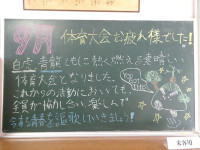 9月 体育大会お疲れ様でした!
白虎 青龍ともに熱く燃える素晴しい
体育大会となりました。
これからの活動においても、
全員が協力し合い、楽しんで
青春を謳歌していきましょう!